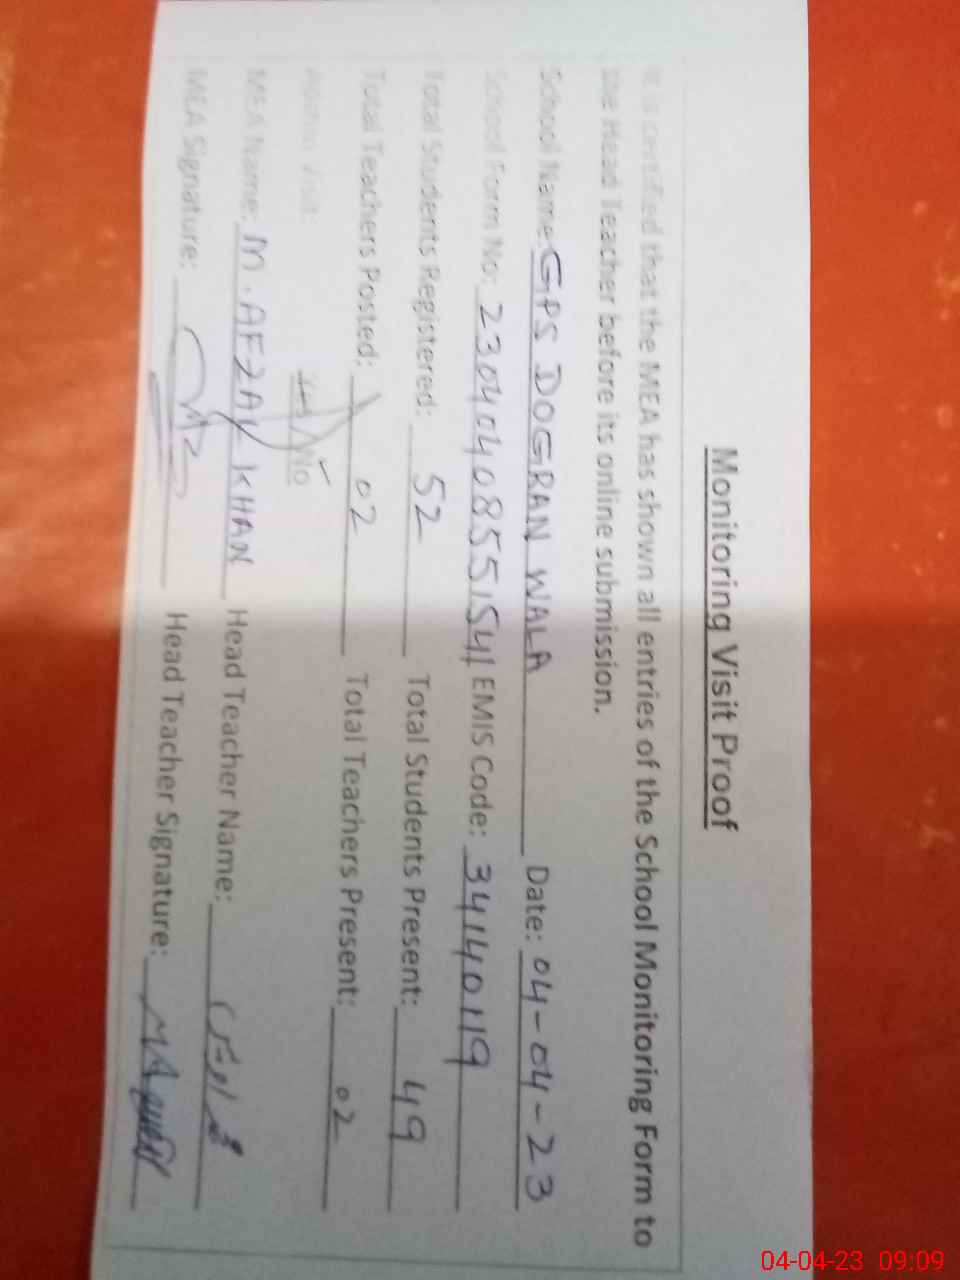 Monitoring Visit Proof
It is certified that the MEA has shown all entries of the School Monitoring Form to
the Head Teacher before its online submission.
School Name: GPS DOGRAN WALA Date: 04-04-23
School Form No: 23040408551541 EMIS Code: 34140119
Total Students Registered: 52 Total Students Present: 49
Total Teachers Posted: 02 Total Teachers Present: 02
Admin Visit: Yes/No
MEA Name: M. AFZAL KHAN Head Teacher Name:
MEA Signature: Head Teacher Signature:
04-04-23 09:09